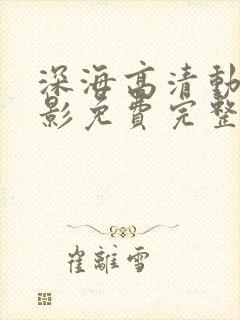 深海高清动
影免费完整
崔離雪